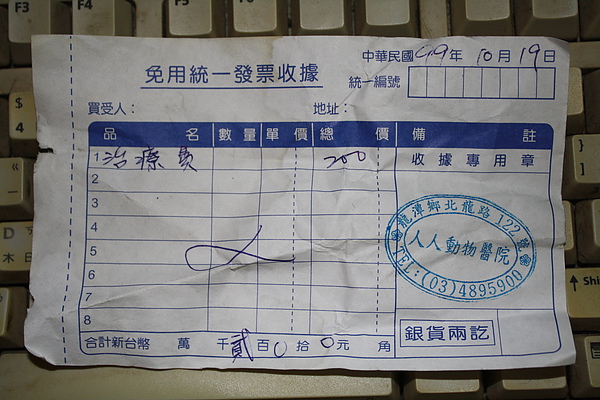 中華民國99年10月19日
免用統一發票收據
統一編號
買受人： 地址：
品名 數量 單價 總價 備註
1 治療費 200 收據專用章
2
3
4
5
6
7
8
龍潭鄉北龍路122號
人人動物醫院
TEL:(03)4895900
合計新台幣 萬 千貳百0拾0元 角
銀貨兩訖
F3
F4
$
4
D
木 日
Shi